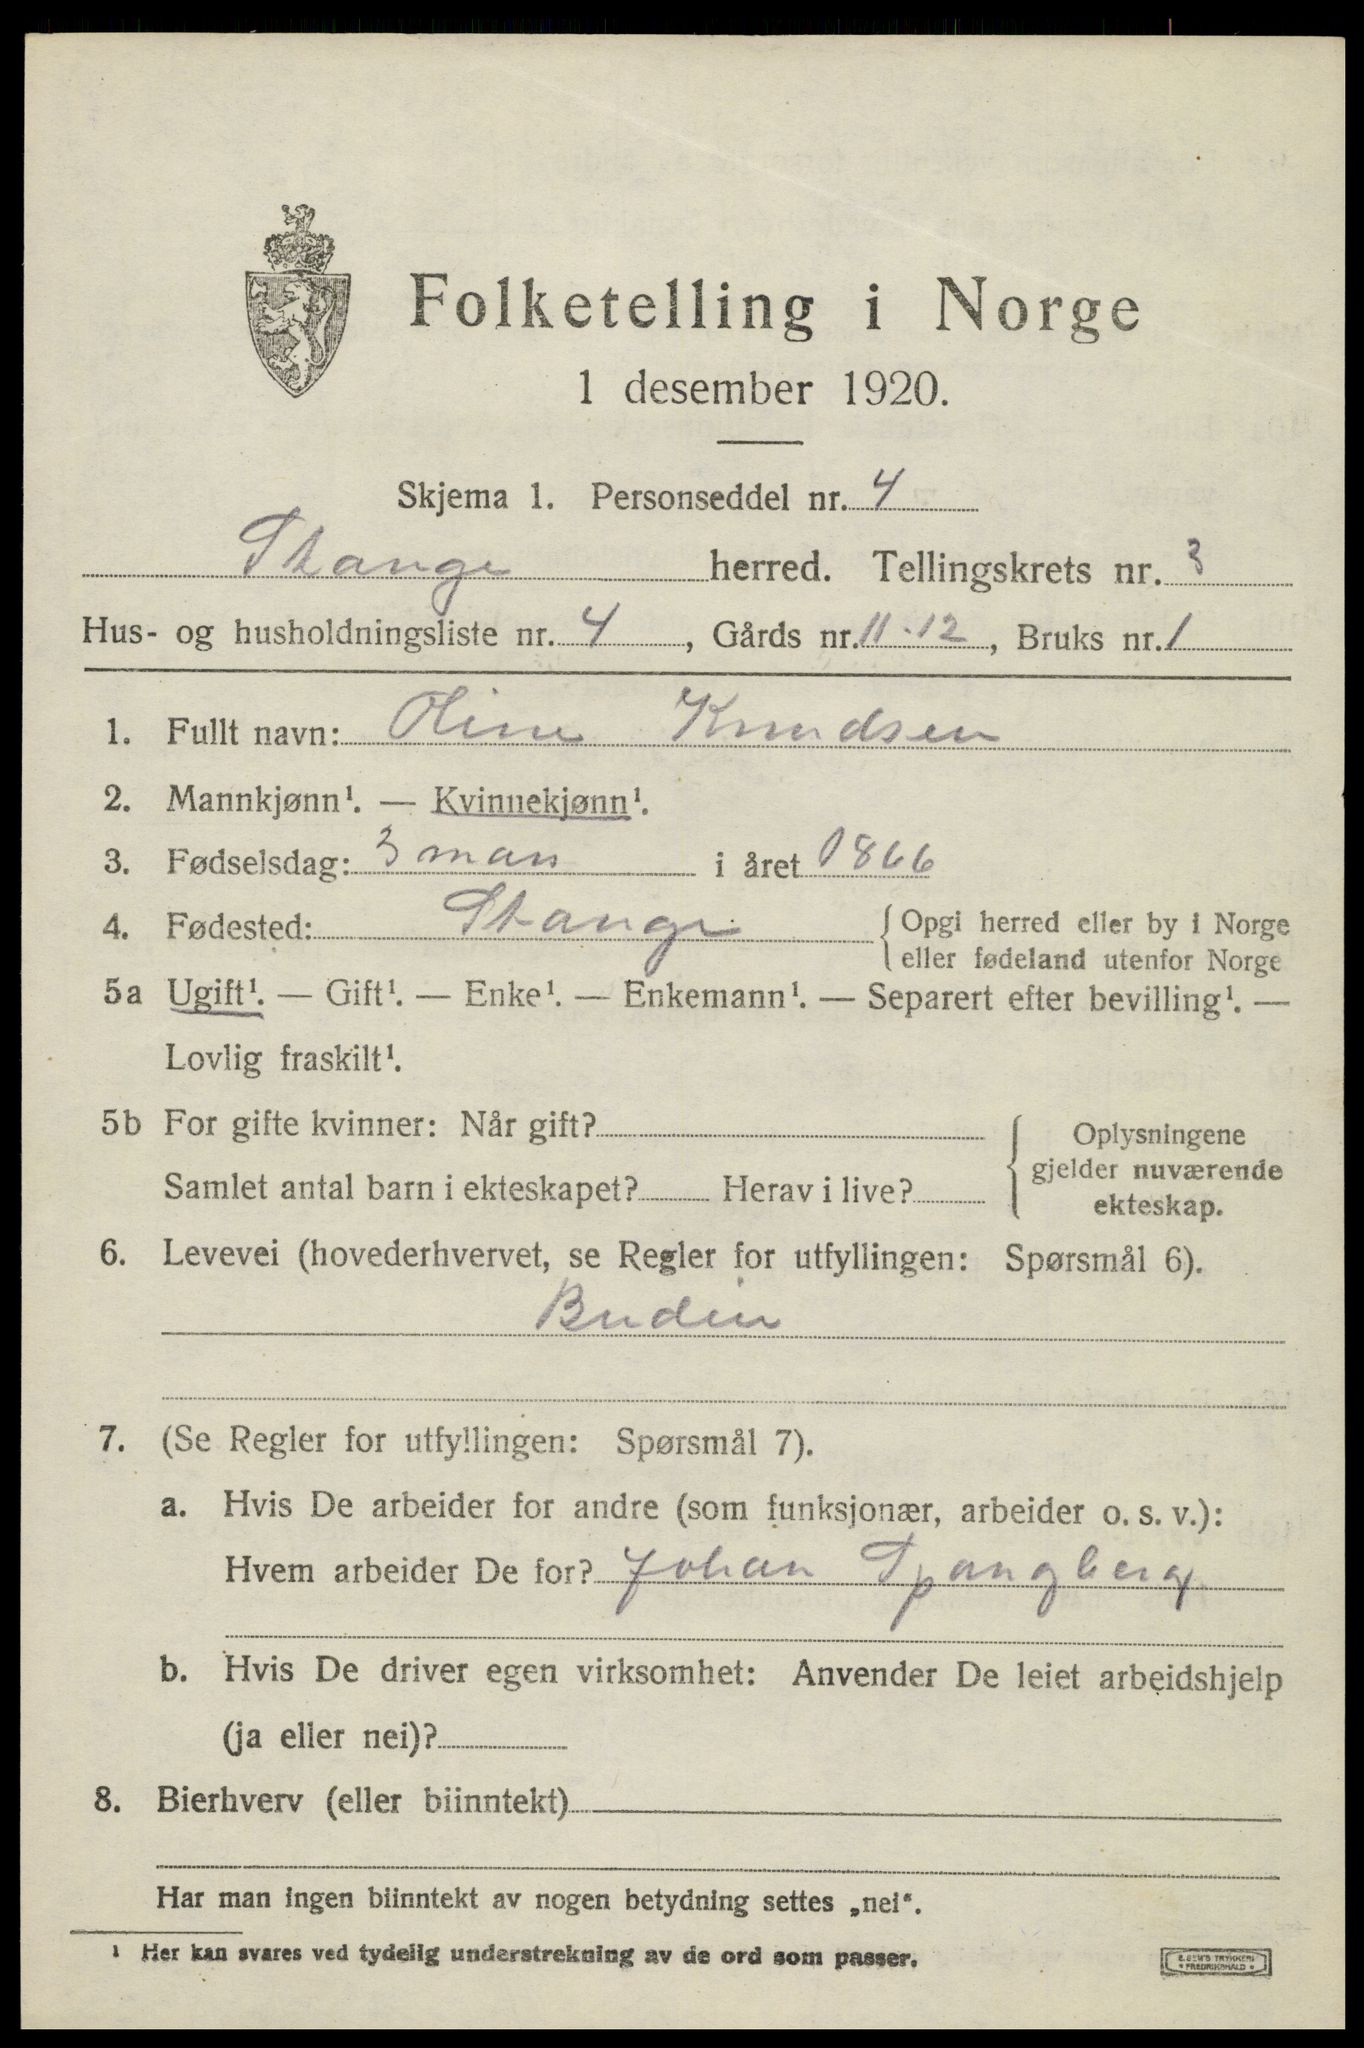 Folketelling i Norge
1 desember 1920.
Skjema 1. Personseddel nr. 4
Stange herred. Tellingskrets nr. 3
Hus- og husholdningsliste nr. 4, Gårds nr. 11-12, Bruks nr. 1
1. Fullt navn: Oline Knudsen
2. Mannkjønn¹. — Kvinnekjønn¹.
3. Fødselsdag: 3 mars i året 1866
4. Fødested: Stange { Opgi herred eller by i Norge
eller fødeland utenfor Norge
5a Ugift¹. — Gift¹. — Enke¹. — Enkemann¹. — Separert efter bevilling¹. —
Lovlig fraskilt¹.
5b For gifte kvinner: Når gift?
Samlet antal barn i ekteskapet? Herav i live?
Oplysningene
gjelder nuværende
ekteskap.
6. Levevei (hovederhvervet, se Regler for utfyllingen: Spørsmål 6).
Budeie
7. (Se Regler for utfyllingen: Spørsmål 7).
a. Hvis De arbeider for andre (som funksjonær, arbeider o. s. v.):
Hvem arbeider De for? Johan Spangberg
b. Hvis De driver egen virksomhet: Anvender De leiet arbeidshjelp
(ja eller nei)?
8. Bierhverv (eller biinntekt)
Har man ingen biinntekt av nogen betydning settes „nei“.
¹ Her kan svares ved tydelig understrekning av de ord som passer.
E. SEM'S TRYKKERI
* FREDRIKSHALD *